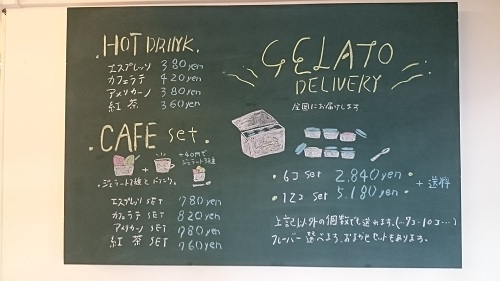 HOT DRINK.
エスプレッソ 380yen
カフェラテ 420yen
アメリカーノ 380yen
紅茶 360yen
CAFE set.
+40円で
ジェラート3種
・ジェラート2種とドリンク。
エスプレッソ SET 780yen
カフェラテ SET 820yen
アメリカーノ SET 780yen
紅茶 SET 760yen
GELATO
DELIVERY
全国にお届けします
・6コ set 2.840yen
・12コ set 5.180yen
+送料
上記以外の個数でも送れます。(…7コ…10コ…)
フレーバー選べます、おまかせセットもあります。